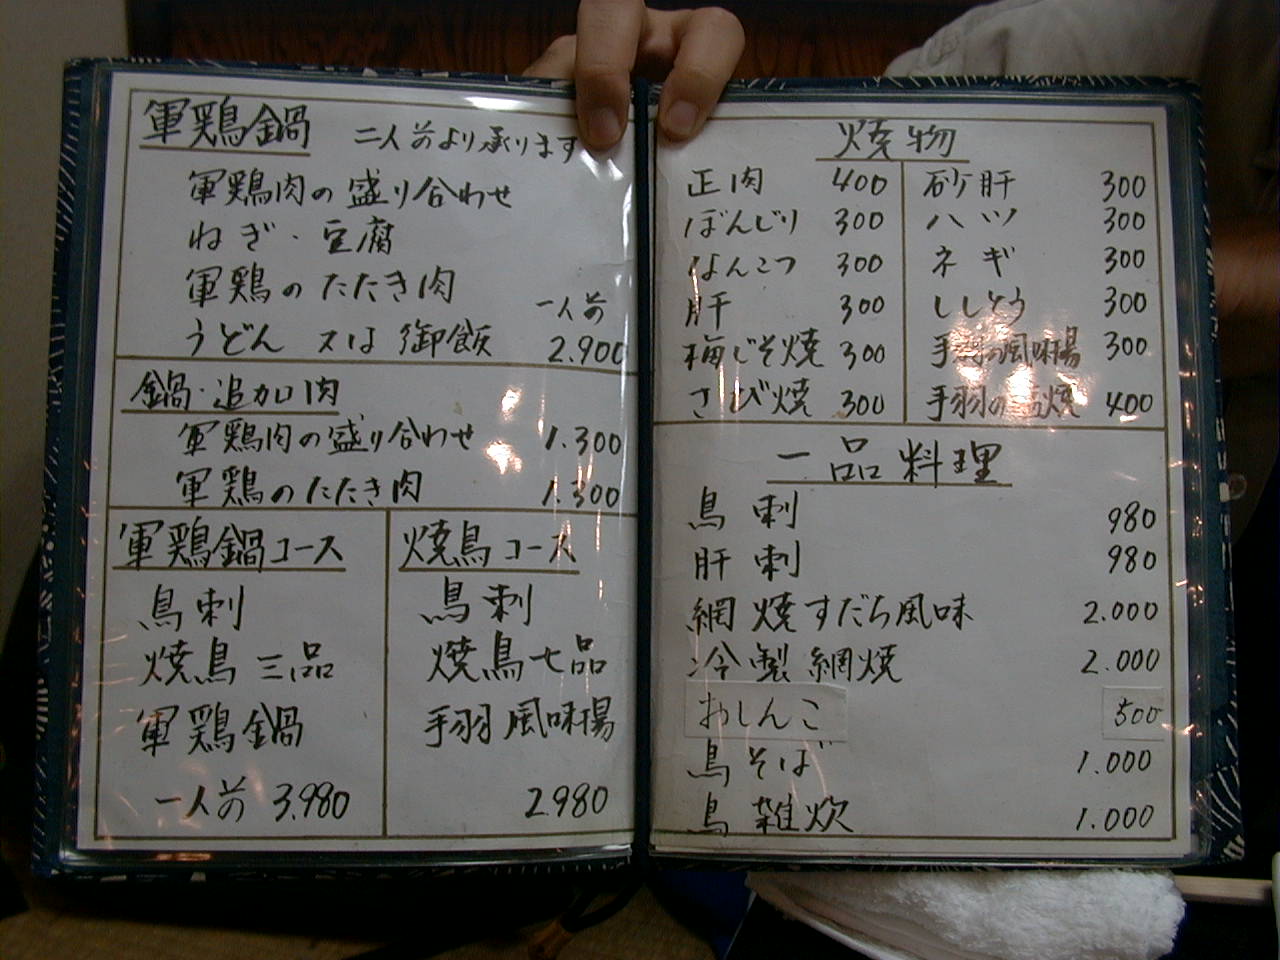 軍鶏鍋 二人前より承ります
軍鶏肉の盛り合わせ
ねぎ・豆腐
軍鶏のたたき肉
一人前
うどん又は御飯 2.900
鍋・追加肉
軍鶏肉の盛り合わせ 1.300
軍鶏のたたき肉 1.300
軍鶏鍋コース
鳥刺
焼鳥三品
軍鶏鍋
一人前 3.980
焼鳥コース
鳥刺
焼鳥七品
手羽風味揚
2.980
焼物
正肉 400
ぼんじり 300
なんこつ 300
肝 300
梅じそ焼 300
さび焼 300
砂肝 300
ハツ 300
ネギ 300
ししとう 300
手羽の風味揚 300
手羽の塩焼 400
一品料理
鳥刺 980
肝刺 980
網焼すだち風味 2.000
冷製網焼 2.000
おしんこ 500
鳥そば 1.000
鳥雑炊 1.000